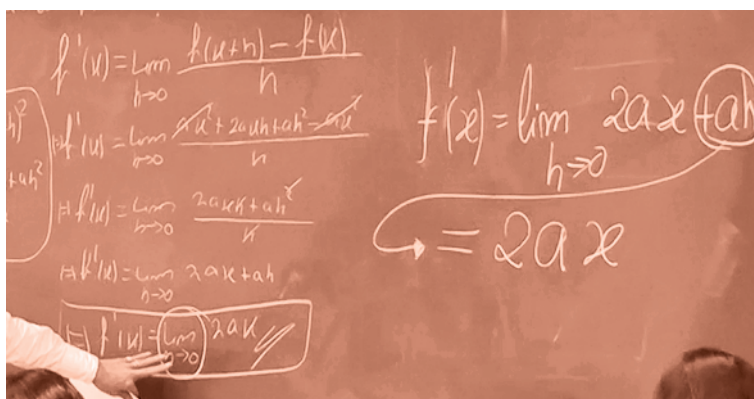 f'(x) = lim h→0 f(x+h) - f(x) / h
⇒ f'(x) = lim h→0 ax² + 2axh + ah² - ax² / h
⇒ f'(x) = lim h→0 2axh + ah² / h
⇒ f'(x) = lim h→0 2ax + ah
⇒ f'(x) = lim h→0 2ax
h)²
+ah²
f'(x) = lim h→0 2ax + ah
= 2ax